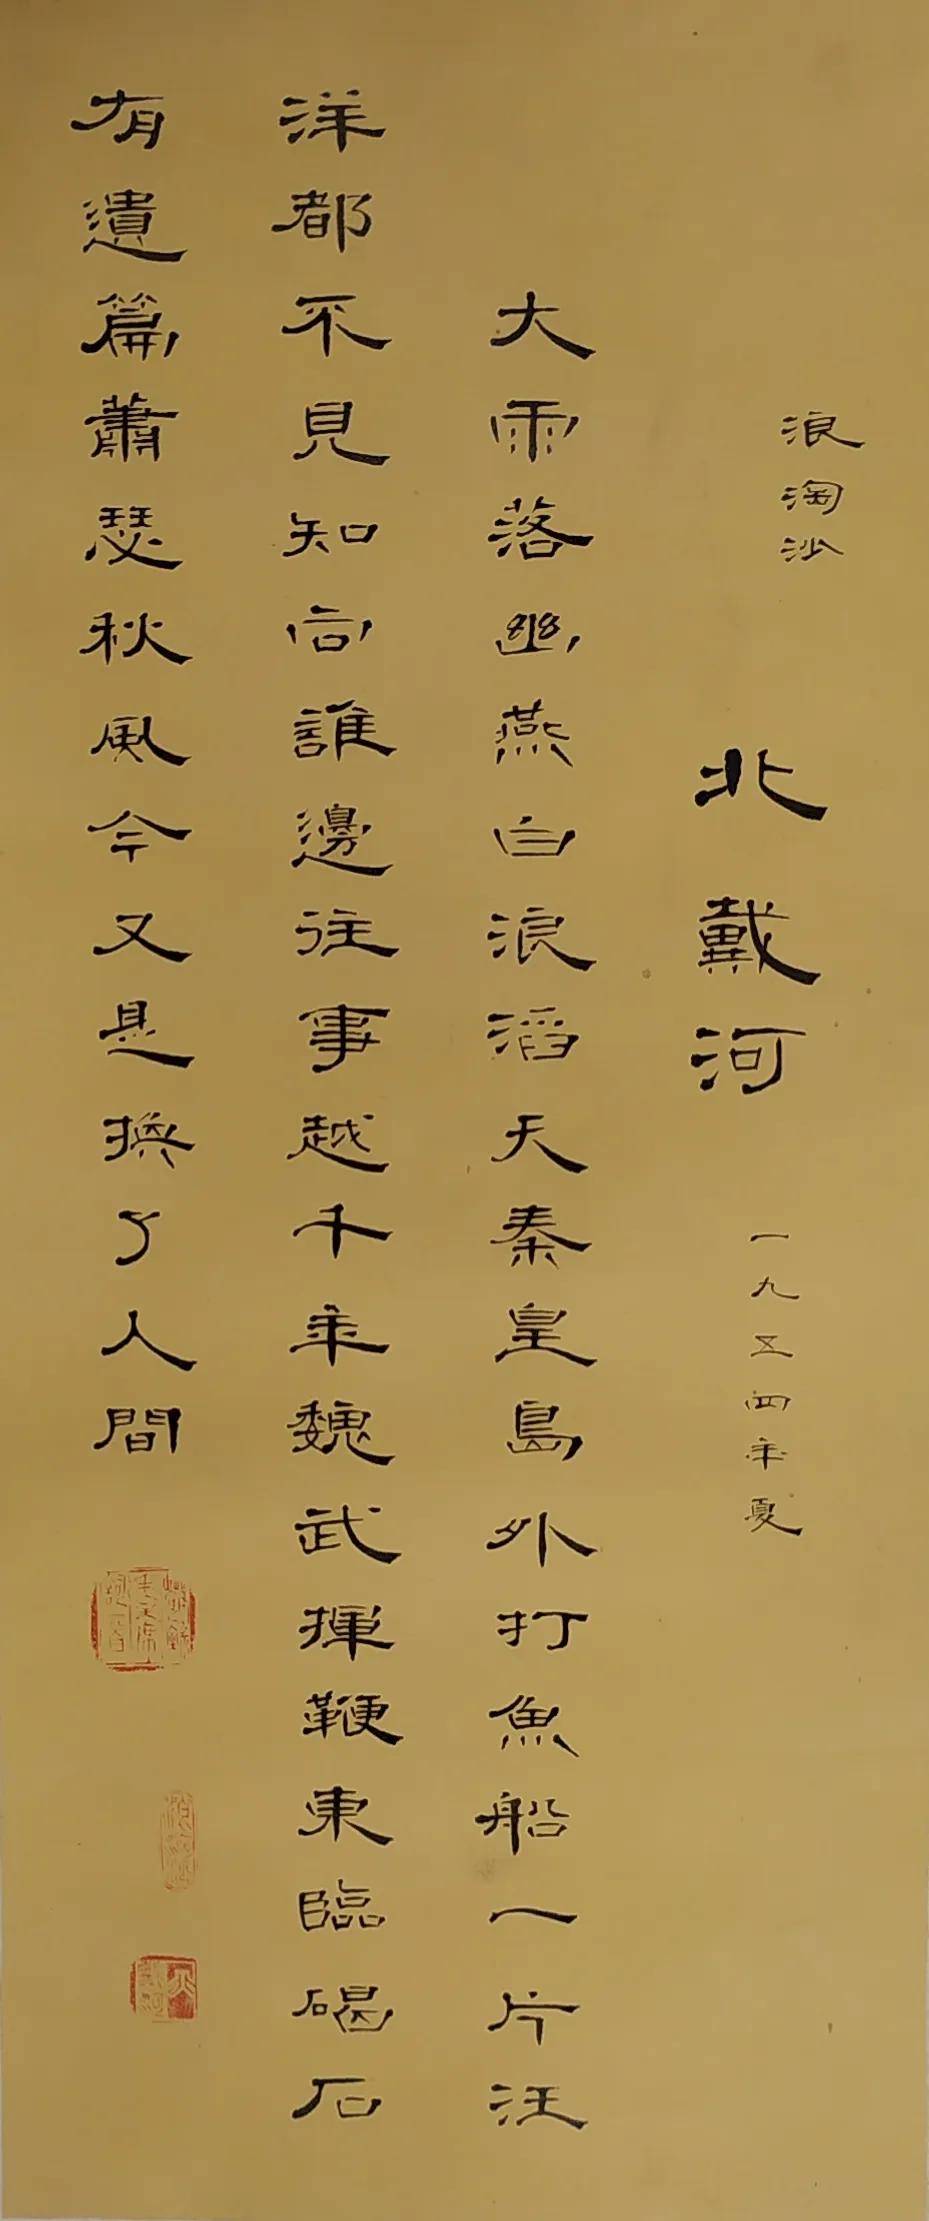 浪淘沙
北戴河
一九五四年夏
大雨落幽燕白浪滔天秦皇島外打魚船一片汪
洋都不見知向誰邊往事越千年魏武揮鞭東臨碣石
有遺篇蕭瑟秋風今又是換了人間